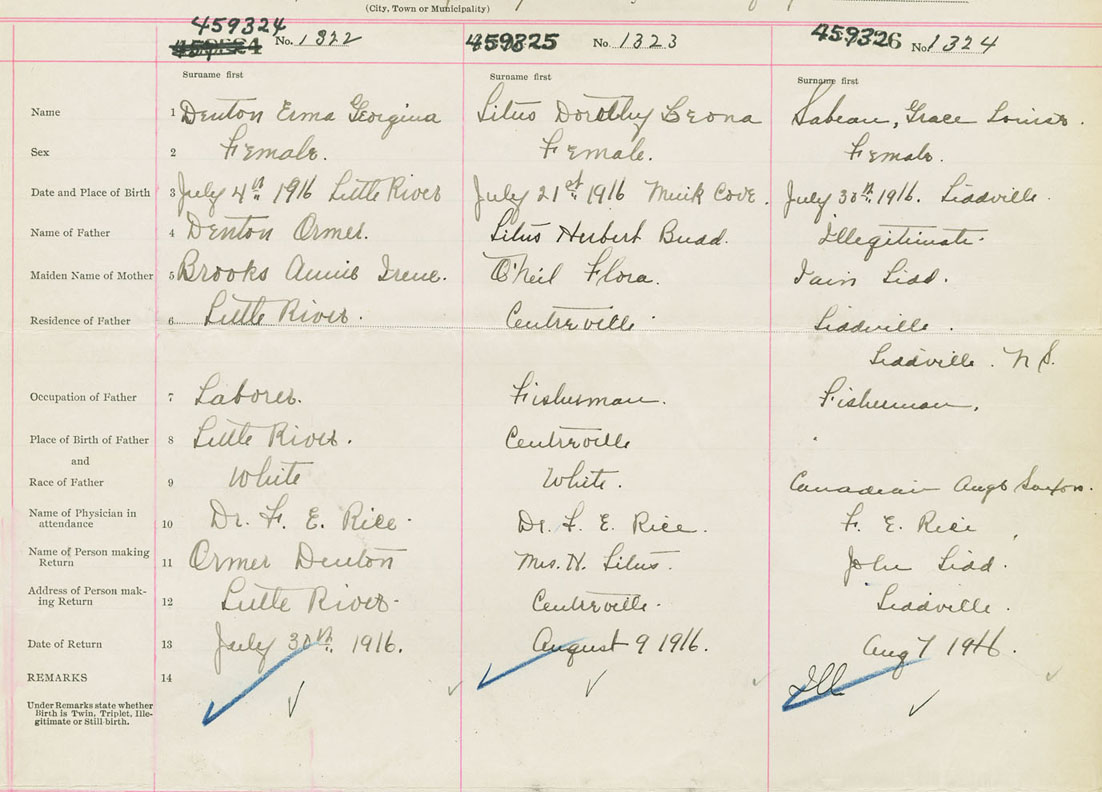 (City, Town or Municipality)
459324 No. 1322 459325 No. 1323 459326 No. 1324
Surname first Surname first Surname first
Name 1 Denton Erma Georgina Titus Dorothy Leona Sabean, Grace Louise.
Sex 2 Female. Female. Female.
Date and Place of Birth 3 July 4th 1916 Little River July 21st 1916 Mink Cove. July 30th 1916. Tiddville.
Name of Father 4 Denton Ormer. Titus Herbert Budd. Illegitimate.
Maiden Name of Mother 5 Brooks Annie Irene. O'Neil Flora. Tidd.
Residence of Father 6 Little River. Centreville Tiddville.
Tiddville. N S.
Occupation of Father 7 Laborer. Fisherman. Fisherman.
Place of Birth of Father 8 Little River. Centreville
and
Race of Father 9 White White. Canadian Anglo Saxon.
Name of Physician in
attendance 10 Dr. F. E. Rice. Dr. F. E. Rice. F. E. Rice
Name of Person making
Return 11 Ormer Denton Mrs. H. Titus. John Tidd.
Address of Person mak-
ing Return 12 Little River. Centreville. Tiddville.
Date of Return 13 July 30th. 1916. August 9 1916. Aug 7 1916.
REMARKS 14 Ill
Under Remarks state whether
Birth is Twin, Triplet, Ille-
gitimate or Still-birth.